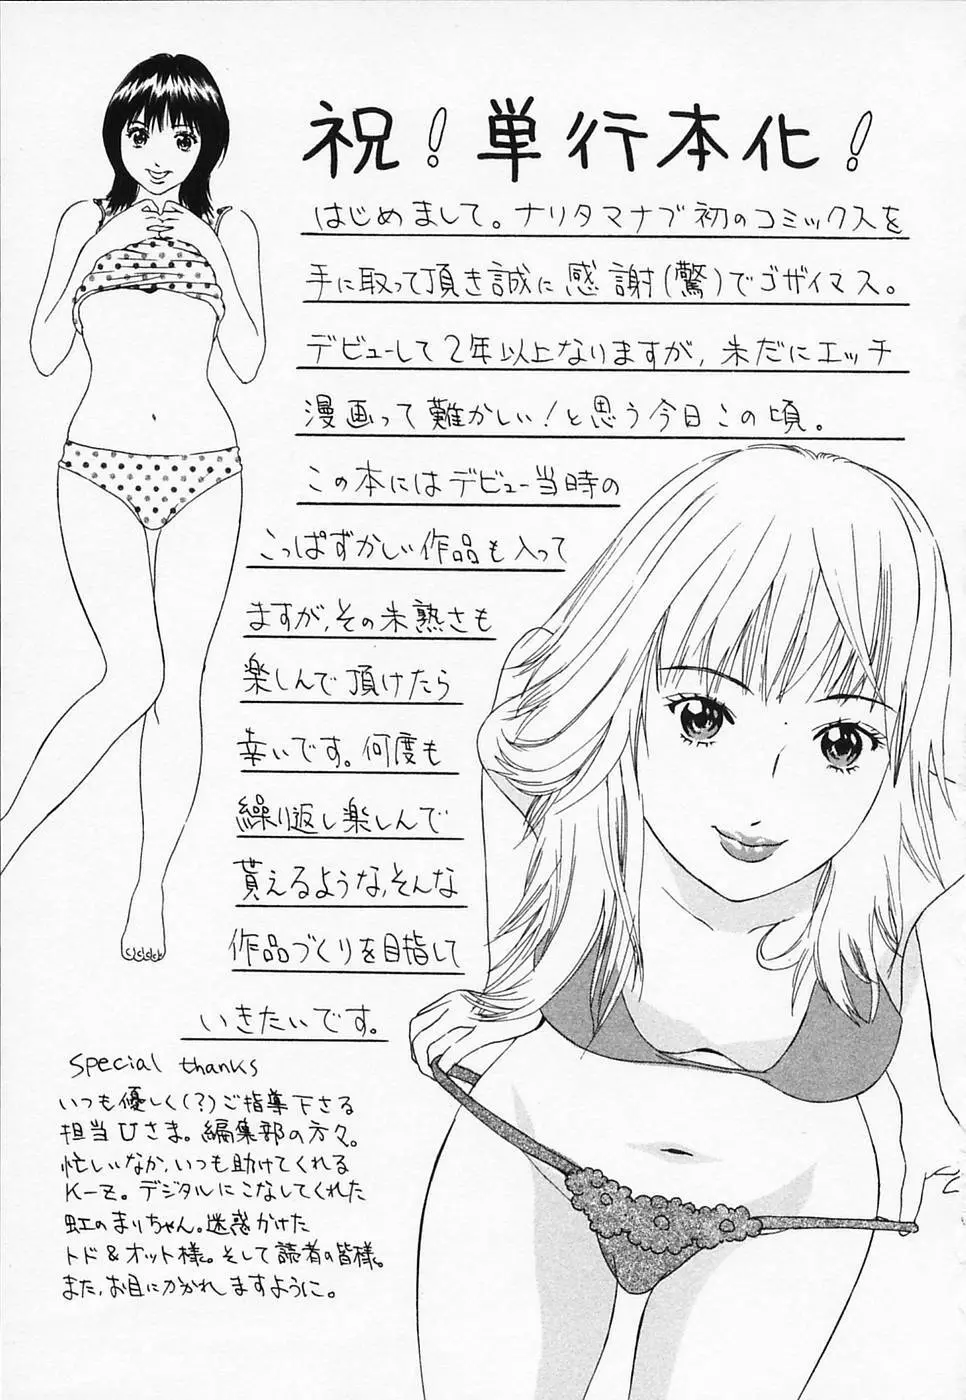 祝!単行本化!
はじめまして。ナリタマナブ初のコミックスを
手に取って頂き誠に感謝(驚)でゴザイマス。
デビューして2年以上なりますが、未だにエッチ
漫画って難かしい!と思う今日この頃。
この本にはデビュー当時の
こっぱずかしい作品も入って
ますが、その未熟さも
楽しんで頂けたら
幸いです。何度も
繰り返し楽しんで
貰えるような、そんな
作品づくりを目指して
いきたいです。
special thanks
いつも優しく(?)ご指導下さる
担当Uさま。編集部の方々。
忙しいなか、いつも助けてくれる
K-Z。デジタルにこなしてくれた
虹のまりちゃん。迷惑かけた
トド&オット様。そして読者の皆様。
また、お目にかかれますように。